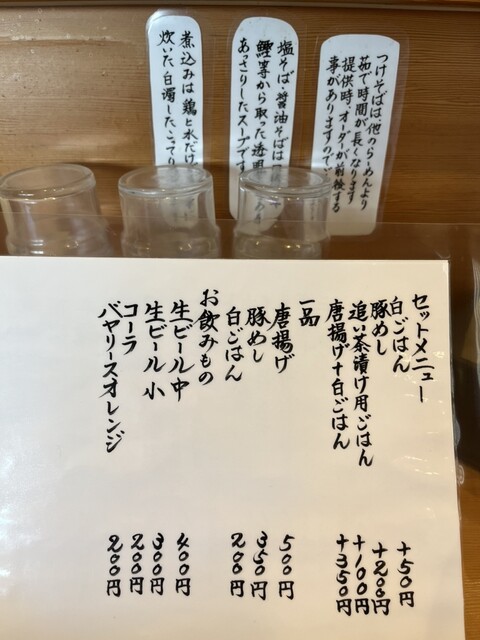 つけそばは、他のらーめんより
茹で時間が長くなります
提供時、オーダーが前後する
事がありますので
塩そば・醤油そばは
鰹等から取った透明
あっさりしたスープです
煮込みは鶏と水だけ
炊いた白濁したこってり
セットメニュー
白ごはん +50円
豚めし +200円
追い茶漬け用ごはん +100円
唐揚げ+白ごはん +350円
一品
唐揚げ 500円
豚めし 350円
白ごはん 200円
お飲みもの
生ビール中 400円
生ビール小 300円
コーラ 200円
バヤリースオレンジ 200円